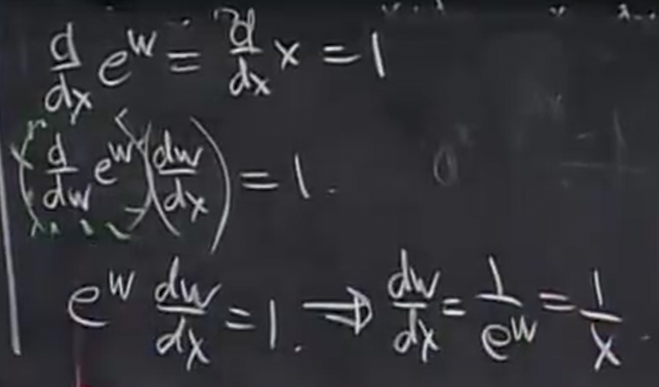 d/dx e^w = d/dx x = 1
(d/dw e^w)(dw/dx) = 1.
e^w dw/dx = 1. ⇒ dw/dx = 1/e^w = 1/x.